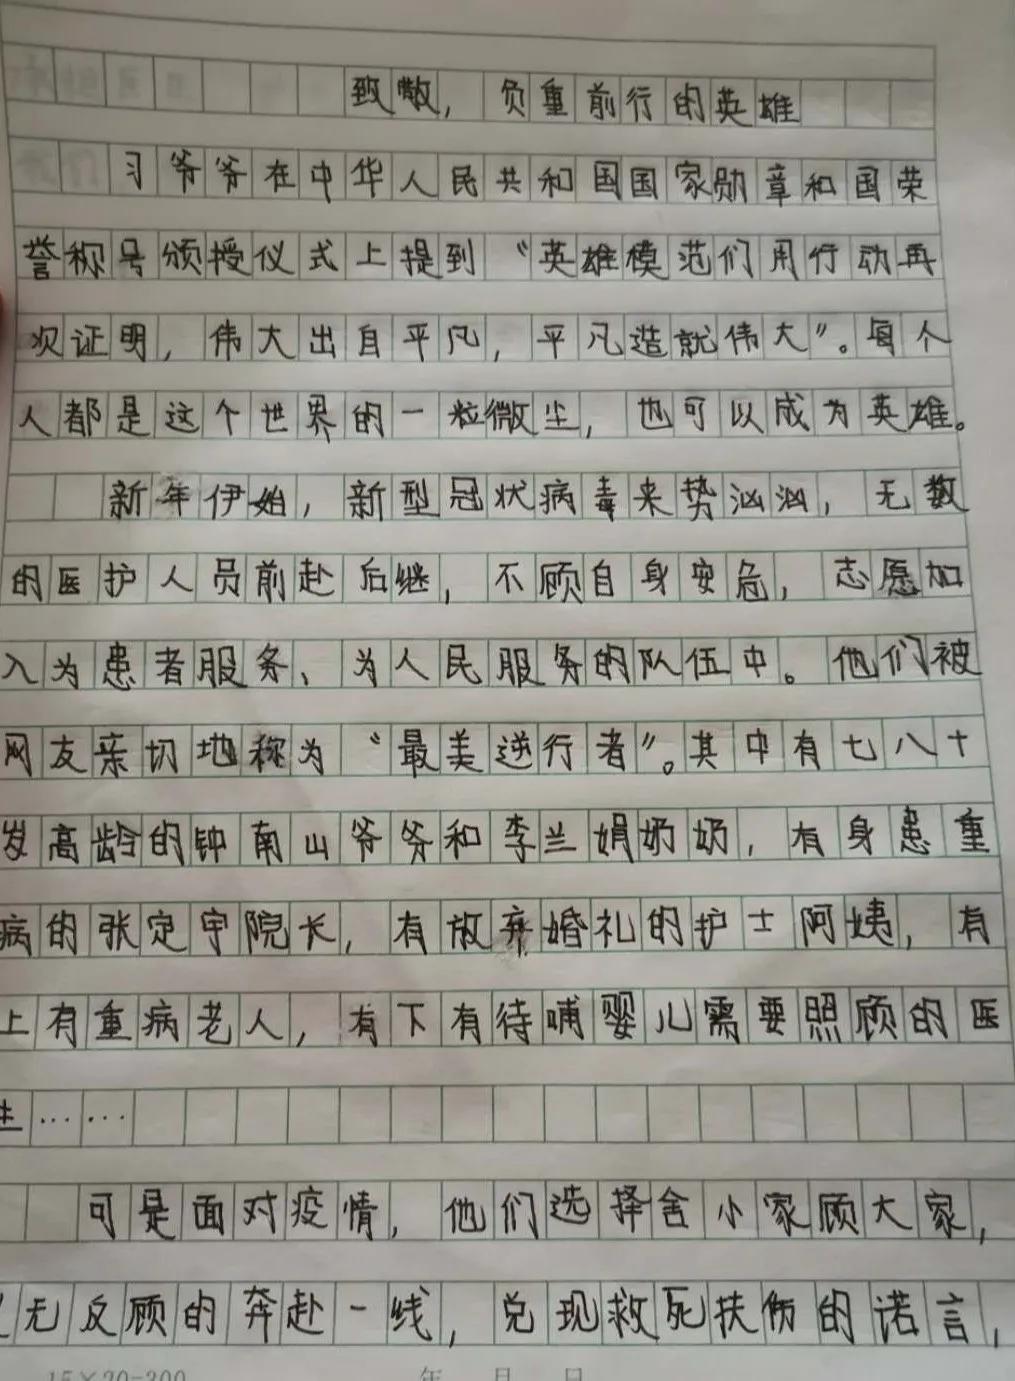 致敬，负重前行的英雄
习爷爷在中华人民共和国国家勋章和国荣
誉称号颁授仪式上提到“英雄模范们用行动再
次证明，伟大出自平凡，平凡造就伟大”。每个
人都是这个世界的一粒微尘，也可以成为英雄。
新年伊始，新型冠状病毒来势汹汹，无数
的医护人员前赴后继，不顾自身安危，志愿加
入为患者服务、为人民服务的队伍中。他们被
网友亲切地称为“最美逆行者”。其中有七八十
岁高龄的钟南山爷爷和李兰娟奶奶，有身患重
病的张定宇院长，有放弃婚礼的护士阿姨，有
上有重病老人，有下有待哺婴儿需要照顾的医
生……
可是面对疫情，他们选择舍小家顾大家，
义无反顾的奔赴一线，兑现救死扶伤的诺言，
15×20=300 年 月 日